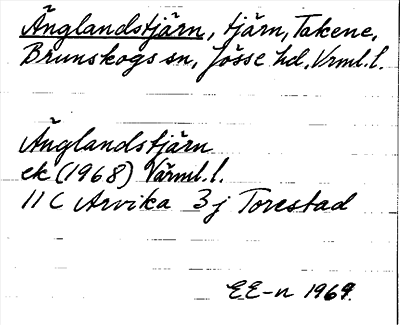 Änglandstjärn, tjärn, Takene,
Brunskogs sn, Jösse hd, Vrml. l.
Änglandstjärn
ek (1968) Värml. l.
11 C Arvika 3 j Torestad
EE-n 1969.